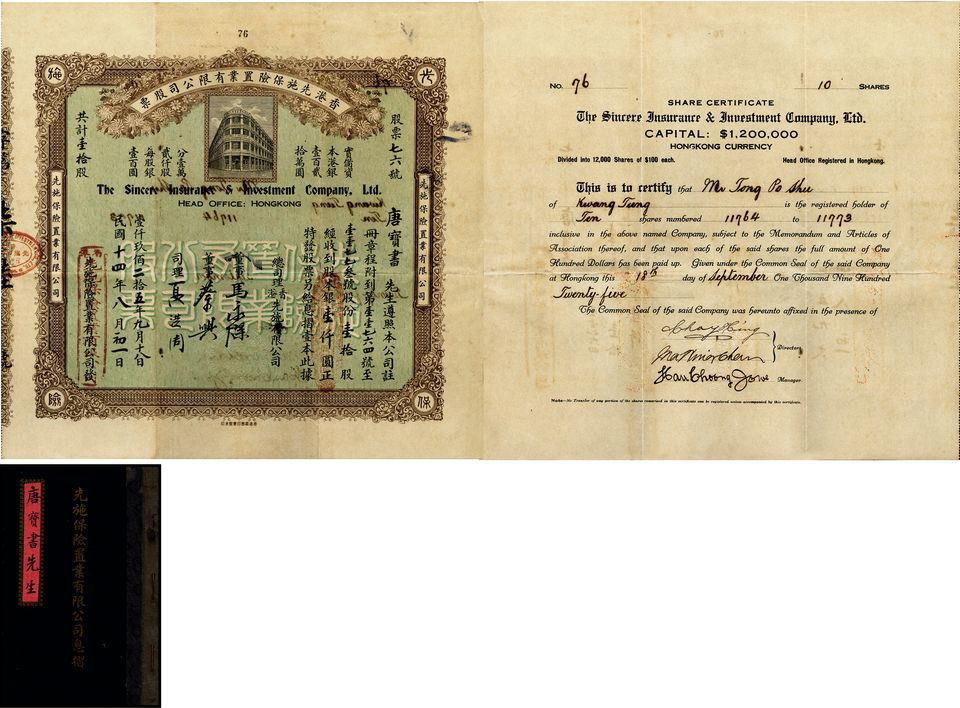 76
香港先施保險置業有限公司股票
先
施
保
險
股票七六號
實備資
本港銀
壹百貳
拾萬圓
分壹萬
貳仟股
每股銀
壹百圓
共計壹拾股
The Sincere Insurance & Investment Company, Ltd.
HEAD OFFICE: HONGKONG
先施保險置業有限公司
唐寶書 先生遵照本公司註
冊章程附到第壹壹七六四號至
壹壹七七叁號股份壹拾股
經收到股本銀壹仟圓正
特發股票另給息摺壹本此據
總司理香港先施有限公司
董事馬永燦
董事蔡興
司理
壹仟玖佰二拾五年九月 日
民國十四年八月初一日
先施保險置業有限公司發
先施保險置業有限公司
No. 76 10 Shares
SHARE CERTIFICATE
The Sincere Insurance & Investment Company, Ltd.
CAPITAL: $1,200,000
HONGKONG CURRENCY
Divided into 12,000 Shares of $100 each. Head Office Registered in Hongkong.
This is to certify that Mr Tong Po Shu
of Kwang Tung is the registered holder of
Ten shares numbered 11764 to 11773
inclusive in the above named Company, subject to the Memorandum and Articles of
Association thereof, and that upon each of the said shares the full amount of One
Hundred Dollars has been paid up. Given under the Common Seal of the said Company
at Hongkong this 18th day of September One Thousand Nine Hundred
Twenty-five
The Common Seal of the said Company was hereunto affixed in the presence of
Choy Hing
Directors
Manager
Note—No Transfer of any portion of the shares comprised in this certificate can be registered unless accompanied by this certificate.
唐寶書先生
先施保險置業有限公司息摺